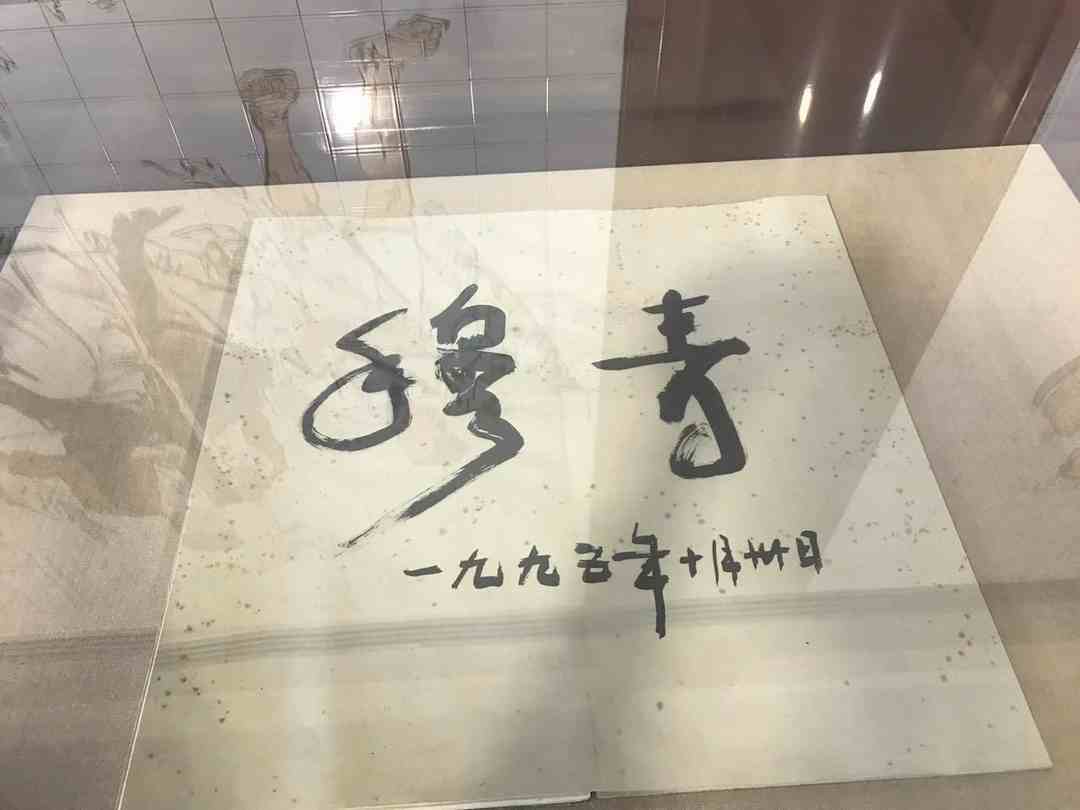 穆青
一九九五年十月卅日